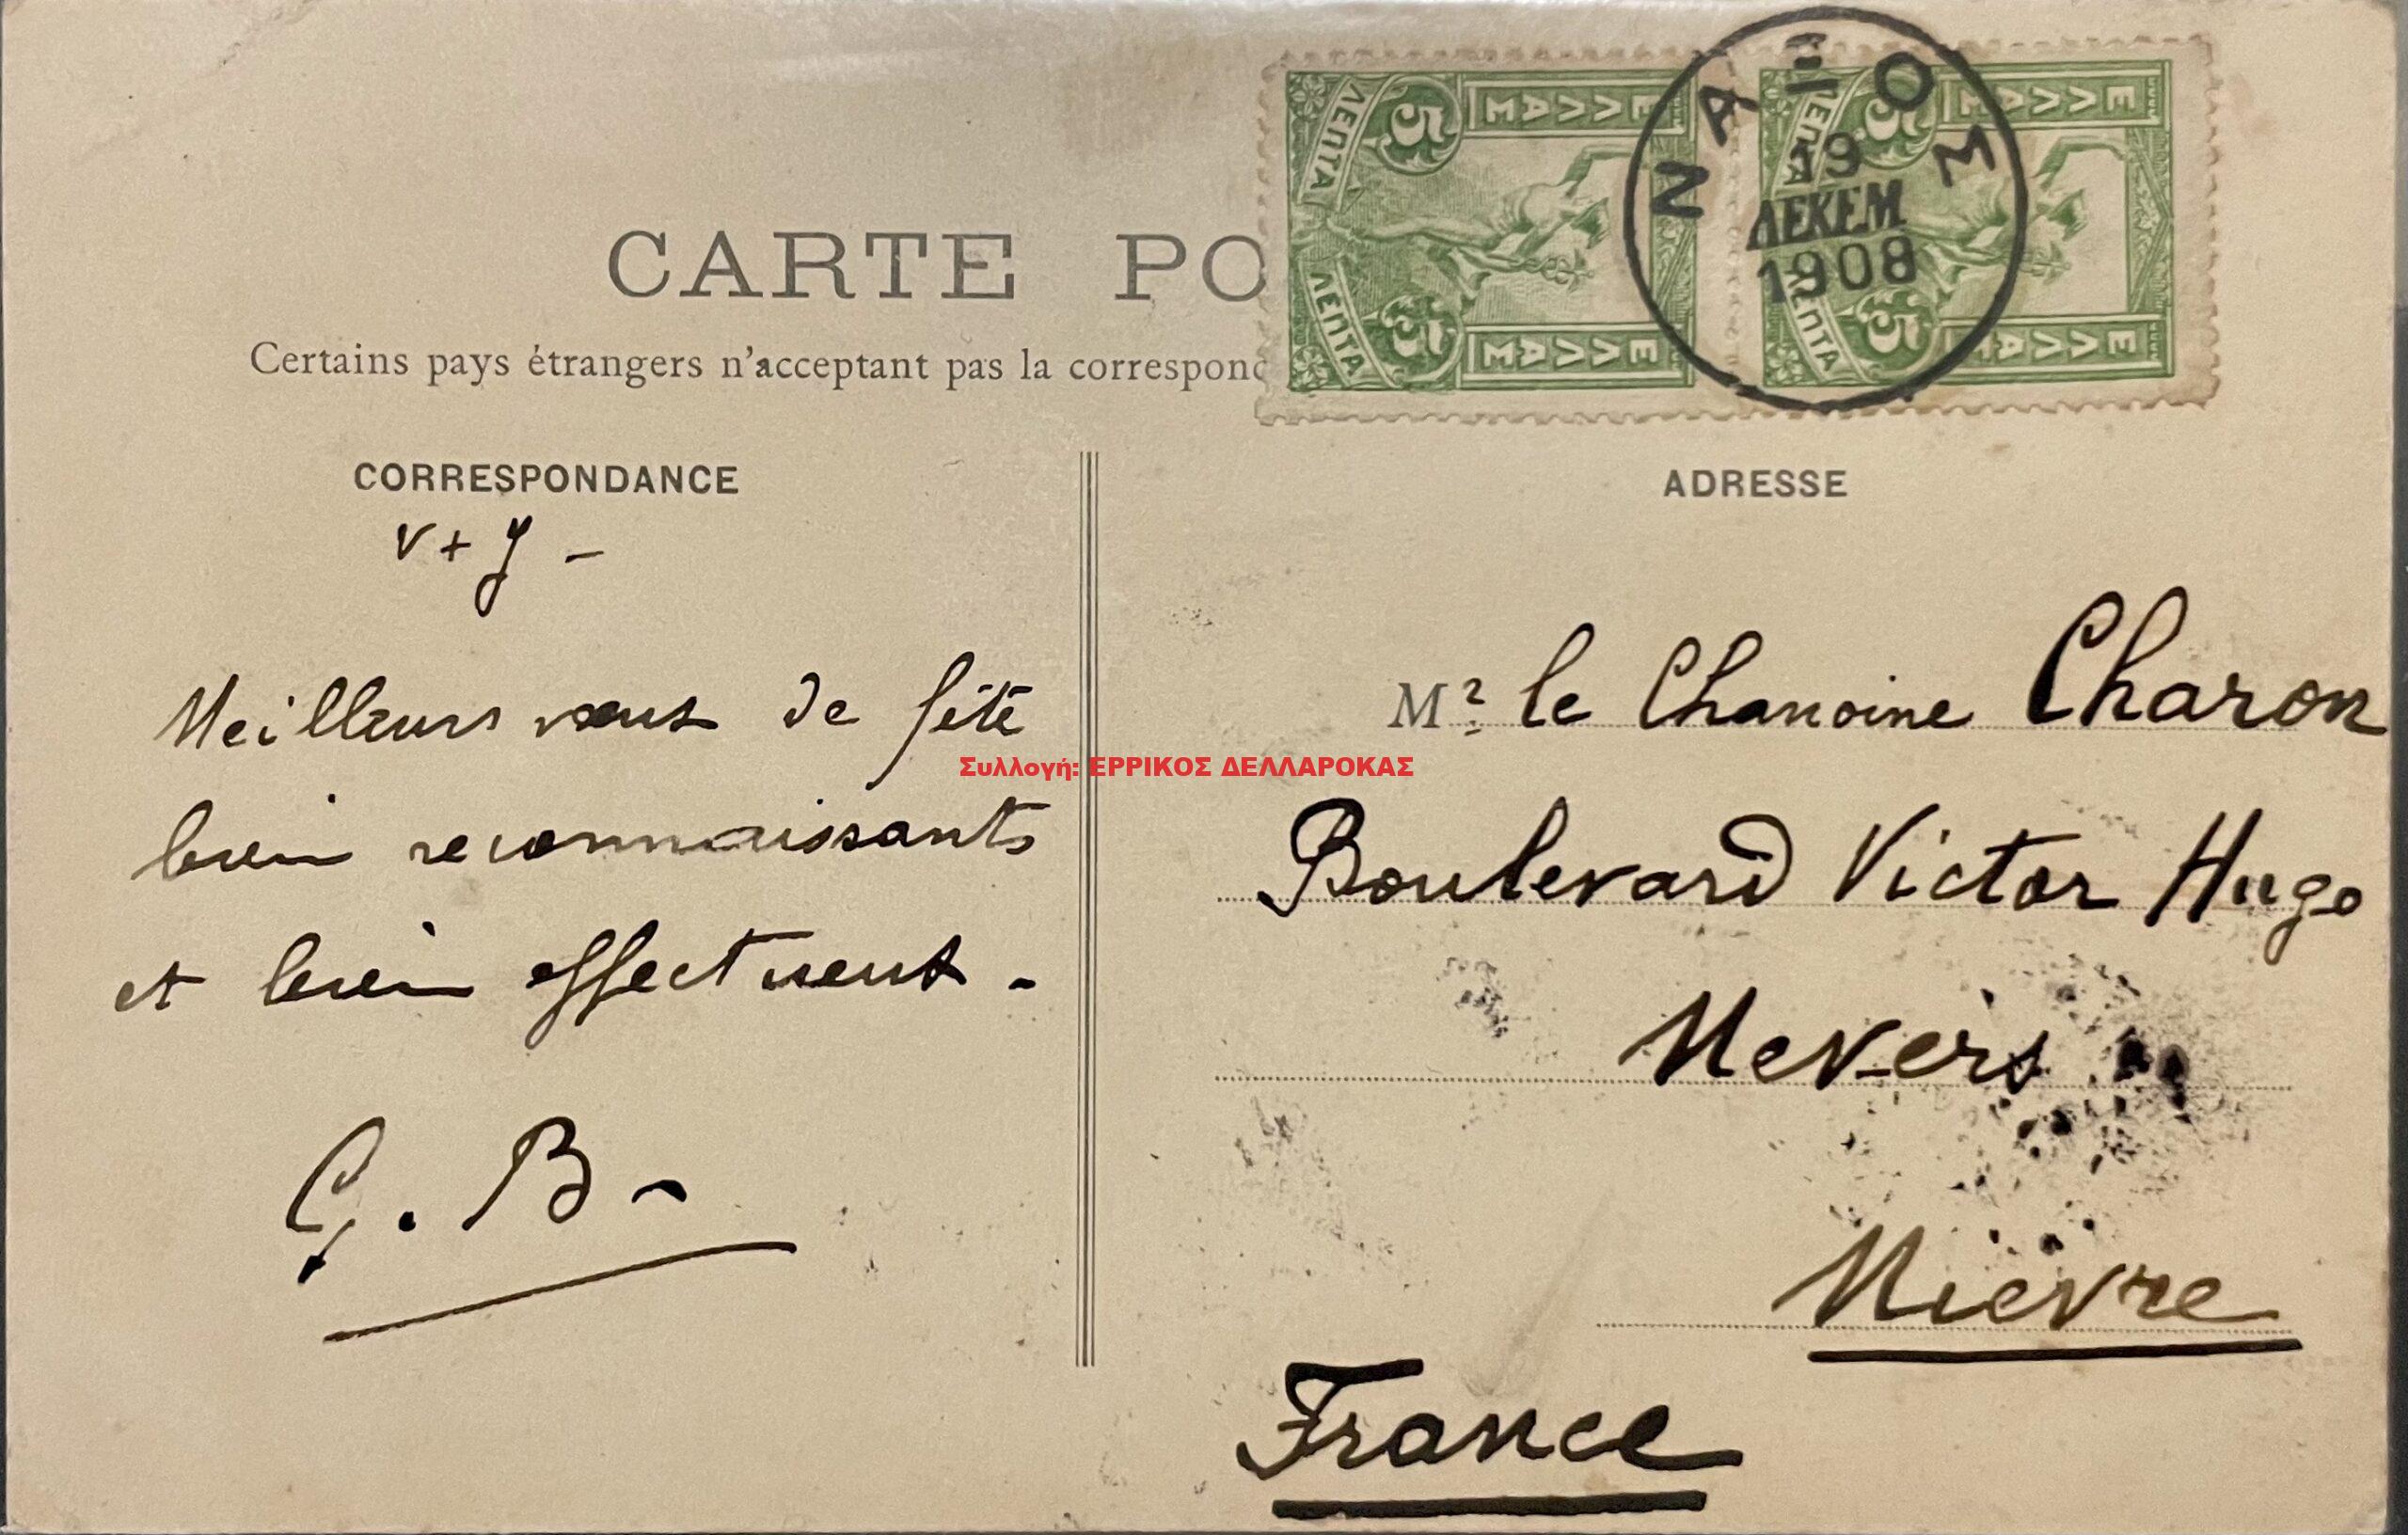 CARTE PO
Certains pays étrangers n'acceptant pas la correspond
ΛΕΠΤΑ 5 ΕΛΛΑΣ
ΛΕΠΤΑ 5 ΕΛΛΑΣ
ΛΕΠΤΑ 5 ΕΛΛΑΣ
ΛΕΠΤΑ 5 ΕΛΛΑΣ
ΝΑΞΟΣ
19
ΔΕΚΕΜ
1908
CORRESPONDANCE
V + J -
Meilleurs vœux de fête
bien reconnaissants
et bien affectueux.
G. B-
ADRESSE
Mr le Chanoine Charon
Boulevard Victor Hugo
Nevers
Nièvre
France
Συλλογή: ΕΡΡΙΚΟΣ ΔΕΛΛΑΡΟΚΑΣ